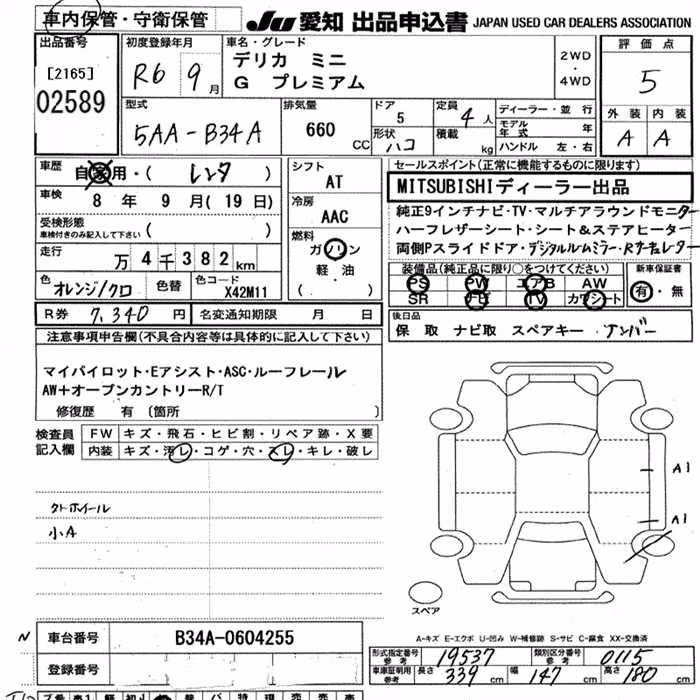 車内保管・守衛保管
JU 愛知 出品申込書 JAPAN USED CAR DEALERS ASSOCIATION
出品番号
[2165]
02589
初度登録年月
R6 9月
車名・グレード
デリカ ミニ
G プレミアム
2WD
・
4WD
評価点
5
外装 内装
A A
型式
5AA-B34A
排気量
660 CC
ドア
5
形状
ハコ
定員
4人
積載 kg
ディーラー・並行
モデル年式 年
ハンドル 左・右
車歴 自家用・( レンタ )
車検 8年 9月(19日)
受検形態
車検付きのみ記入して下さい ( )
走行 万4千382km
色 オレンジ/クロ 色替 色コード X42M11
シフト
AT
冷房
AAC
燃料
ガソリン
軽・油
( )
セールスポイント(正常に機能するものに限り)
MITSUBISHIディーラー出品
純正9インチナビ・TV・マルチアラウンドモニター
ハーフレザーシート・シート&ステアヒーター
両側Pスライドドア・デジタルルムミラー・Rサーキュレーター
装備品(純正品に限り○をつけてください)
PS PW エアB AW
SR ナビ TV カワシート
新車保証書
有・無
R券 7,340円 名変通知期限 月 日
後日品
保 取 ナビ取 スペアキー ナンバー
注意事項申告欄(不具合内容等は具体的に記入して下さい)
マイパイロット・Eアシスト・ASC・ルーフレール
AW+オープンカントリーR/T
修復歴 有 [箇所 ]
検査員
記入欄
FW キズ・飛石・ヒビ割・リペア跡・X要
内装 キズ・汚レ・コゲ・穴・スレ・キレ・破レ
クトホイール
小A
A1
A1
スペア
A-キズ E-エクボ U-凹み W-補修跡 S-サビ C-腐食 XX-交換済
N 車台番号 B34A-0604255
登録番号
形式指定番号
参考 19537
類別区分番号
参考 0115
車車証明用
参考 長さ 339cm 幅 147cm 高さ 180cm